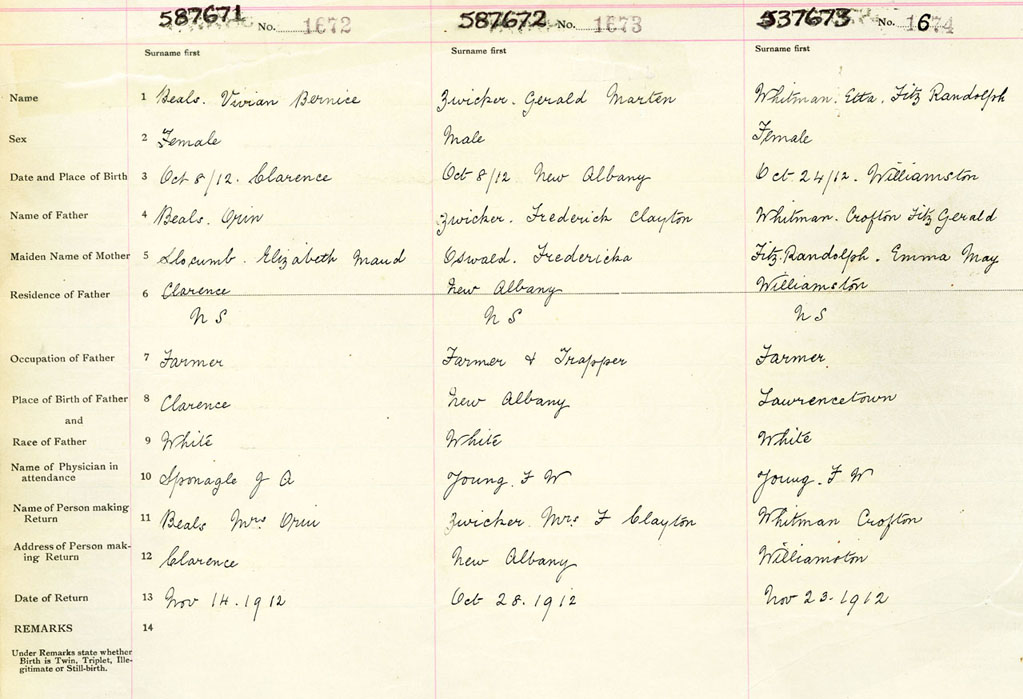 587671 No. 1672 587672 No. 1673 537673 No. 1674
Surname first Surname first Surname first
Name 1 Beals. Vivian Bernice Zwicker. Gerald Marten Whitman. Etta. Fitz Randolph
Sex 2 Female Male Female
Date and Place of Birth 3 Oct 8/12. Clarence Oct 8/12 New Albany Oct 24/12. Williamston
Name of Father 4 Beals. Orin Zwicker. Frederick Clayton Whitman. Crofton Fitz Gerald
Maiden Name of Mother 5 Slocumb. Elizabeth Maud Oswald. Fredericka Fitz-Randolph. Emma May
Residence of Father 6 Clarence New Albany Williamston
N S N S N S
Occupation of Father 7 Farmer Farmer & Trapper Farmer
Place of Birth of Father 8 Clarence New Albany Lawrencetown
and
Race of Father 9 White White White
Name of Physician in
attendance 10 Sponagle J A Young. F W Young. F W
Name of Person making
Return 11 Beals Mrs Orin Zwicker Mrs F Clayton Whitman Crofton
Address of Person mak-
ing Return 12 Clarence New Albany Williamston
Date of Return 13 Nov 14. 1912 Oct 28. 1912 Nov 23-1912
REMARKS 14
Under Remarks state whether
Birth is Twin, Triplet, Ille-
gitimate or Still-birth.